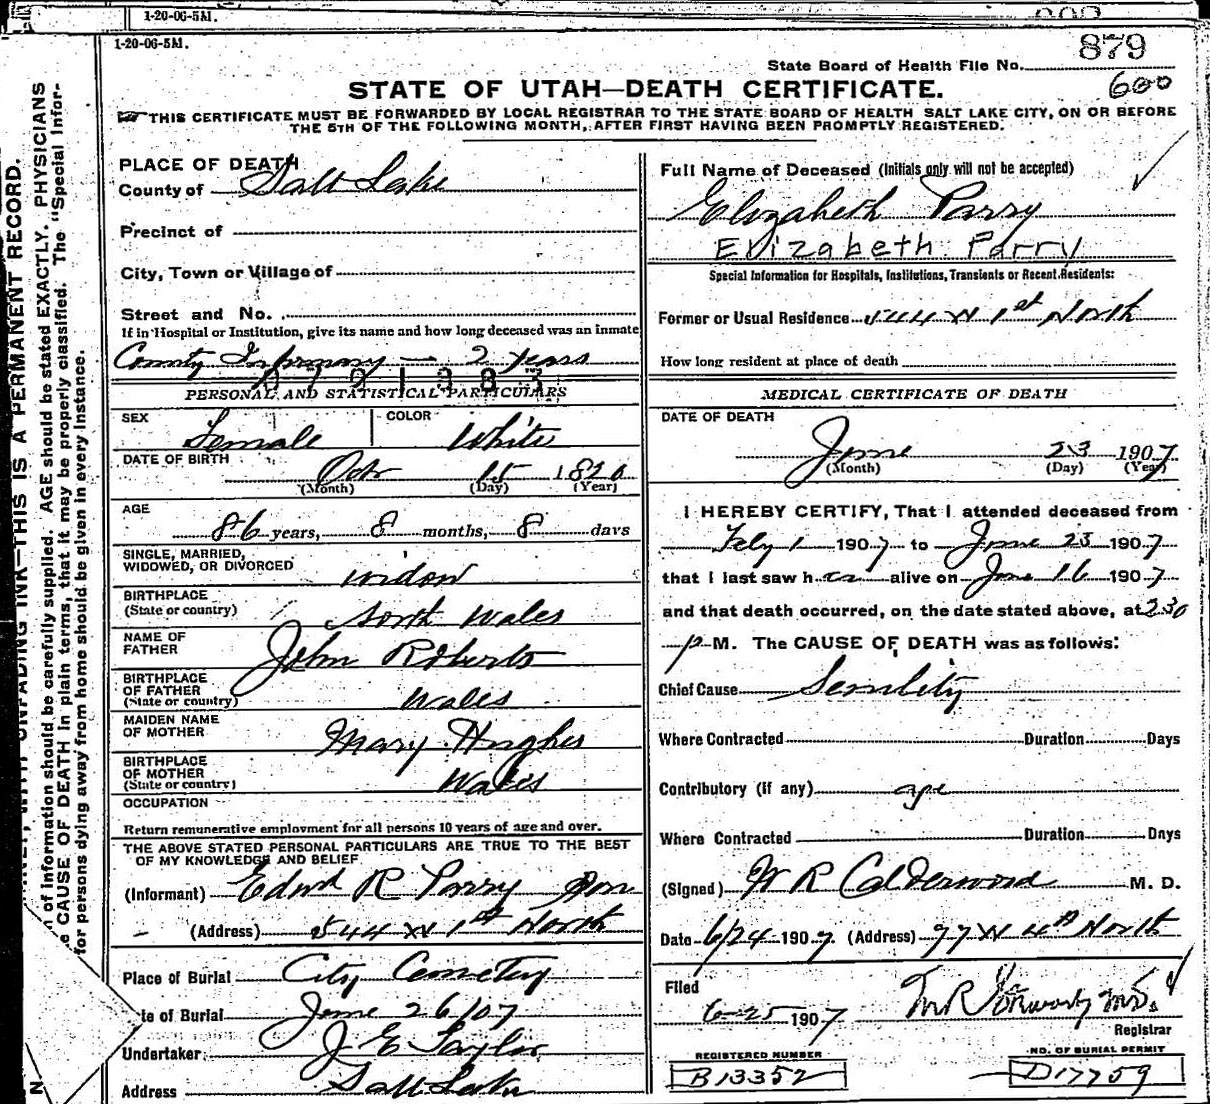 1-20-06-5M.
1-20-06-5M.
879
State Board of Health File No.
600
STATE OF UTAH—DEATH CERTIFICATE.
THIS CERTIFICATE MUST BE FORWARDED BY LOCAL REGISTRAR TO THE STATE BOARD OF HEALTH SALT LAKE CITY, ON OR BEFORE
THE 5TH OF THE FOLLOWING MONTH, AFTER FIRST HAVING BEEN PROMPTLY REGISTERED.
PLACE OF DEATH
County of Salt Lake
Precinct of
City, Town or Village of
Street and No.
If in Hospital or Institution, give its name and how long deceased was an inmate
County Infirmary — 2 years
PERSONAL AND STATISTICAL PARTICULARS
SEX Female COLOR White
DATE OF BIRTH Oct 15 1820
(Month) (Day) (Year)
AGE
86 years, 8 months, 8 days
SINGLE, MARRIED,
WIDOWED, OR DIVORCED widow
BIRTHPLACE
(State or country) North Wales
NAME OF
FATHER John Roberts
BIRTHPLACE
OF FATHER
(State or country) Wales
MAIDEN NAME
OF MOTHER Mary Hughes
BIRTHPLACE
OF MOTHER
(State or country) Wales
OCCUPATION
Return remunerative employment for all persons 10 years of age and over.
THE ABOVE STATED PERSONAL PARTICULARS ARE TRUE TO THE BEST
OF MY KNOWLEDGE AND BELIEF
(Informant) Edwd R Parry Son
(Address) 544 W 1st North
Place of Burial City Cemetery
te of Burial June 26/07
Undertaker J E Taylor
Address Salt Lake
Full Name of Deceased (Initials only will not be accepted)
Elizabeth Parry
Elizabeth Parry
Special Information for Hospitals, Institutions, Transients or Recent Residents:
Former or Usual Residence 544 W 1st North
How long resident at place of death
MEDICAL CERTIFICATE OF DEATH
DATE OF DEATH
June 23 1907
(Month) (Day) (Year)
I HEREBY CERTIFY, That I attended deceased from
Feby 1 1907 to June 23 1907
that I last saw her alive on June 16 1907
and that death occurred, on the date stated above, at 2 30
p M. The CAUSE OF DEATH was as follows:
Chief Cause Senility
Where Contracted Duration Days
Contributory (if any) age
Where Contracted Duration Days
(Signed) W R Calderwood M. D.
Date 6/24 1907. (Address) 77 W 4th North
Filed
6-25 1907
Registrar
REGISTERED NUMBER
B13352
NO. OF BURIAL PERMIT
D17759
UNFADING INK—THIS IS A PERMANENT RECORD.
of information should be carefully supplied. AGE should be stated EXACTLY. PHYSICIANS
CAUSE OF DEATH in plain terms, that it may be properly classified. The "Special Infor-
for persons dying away from home should be given in every instance.
N